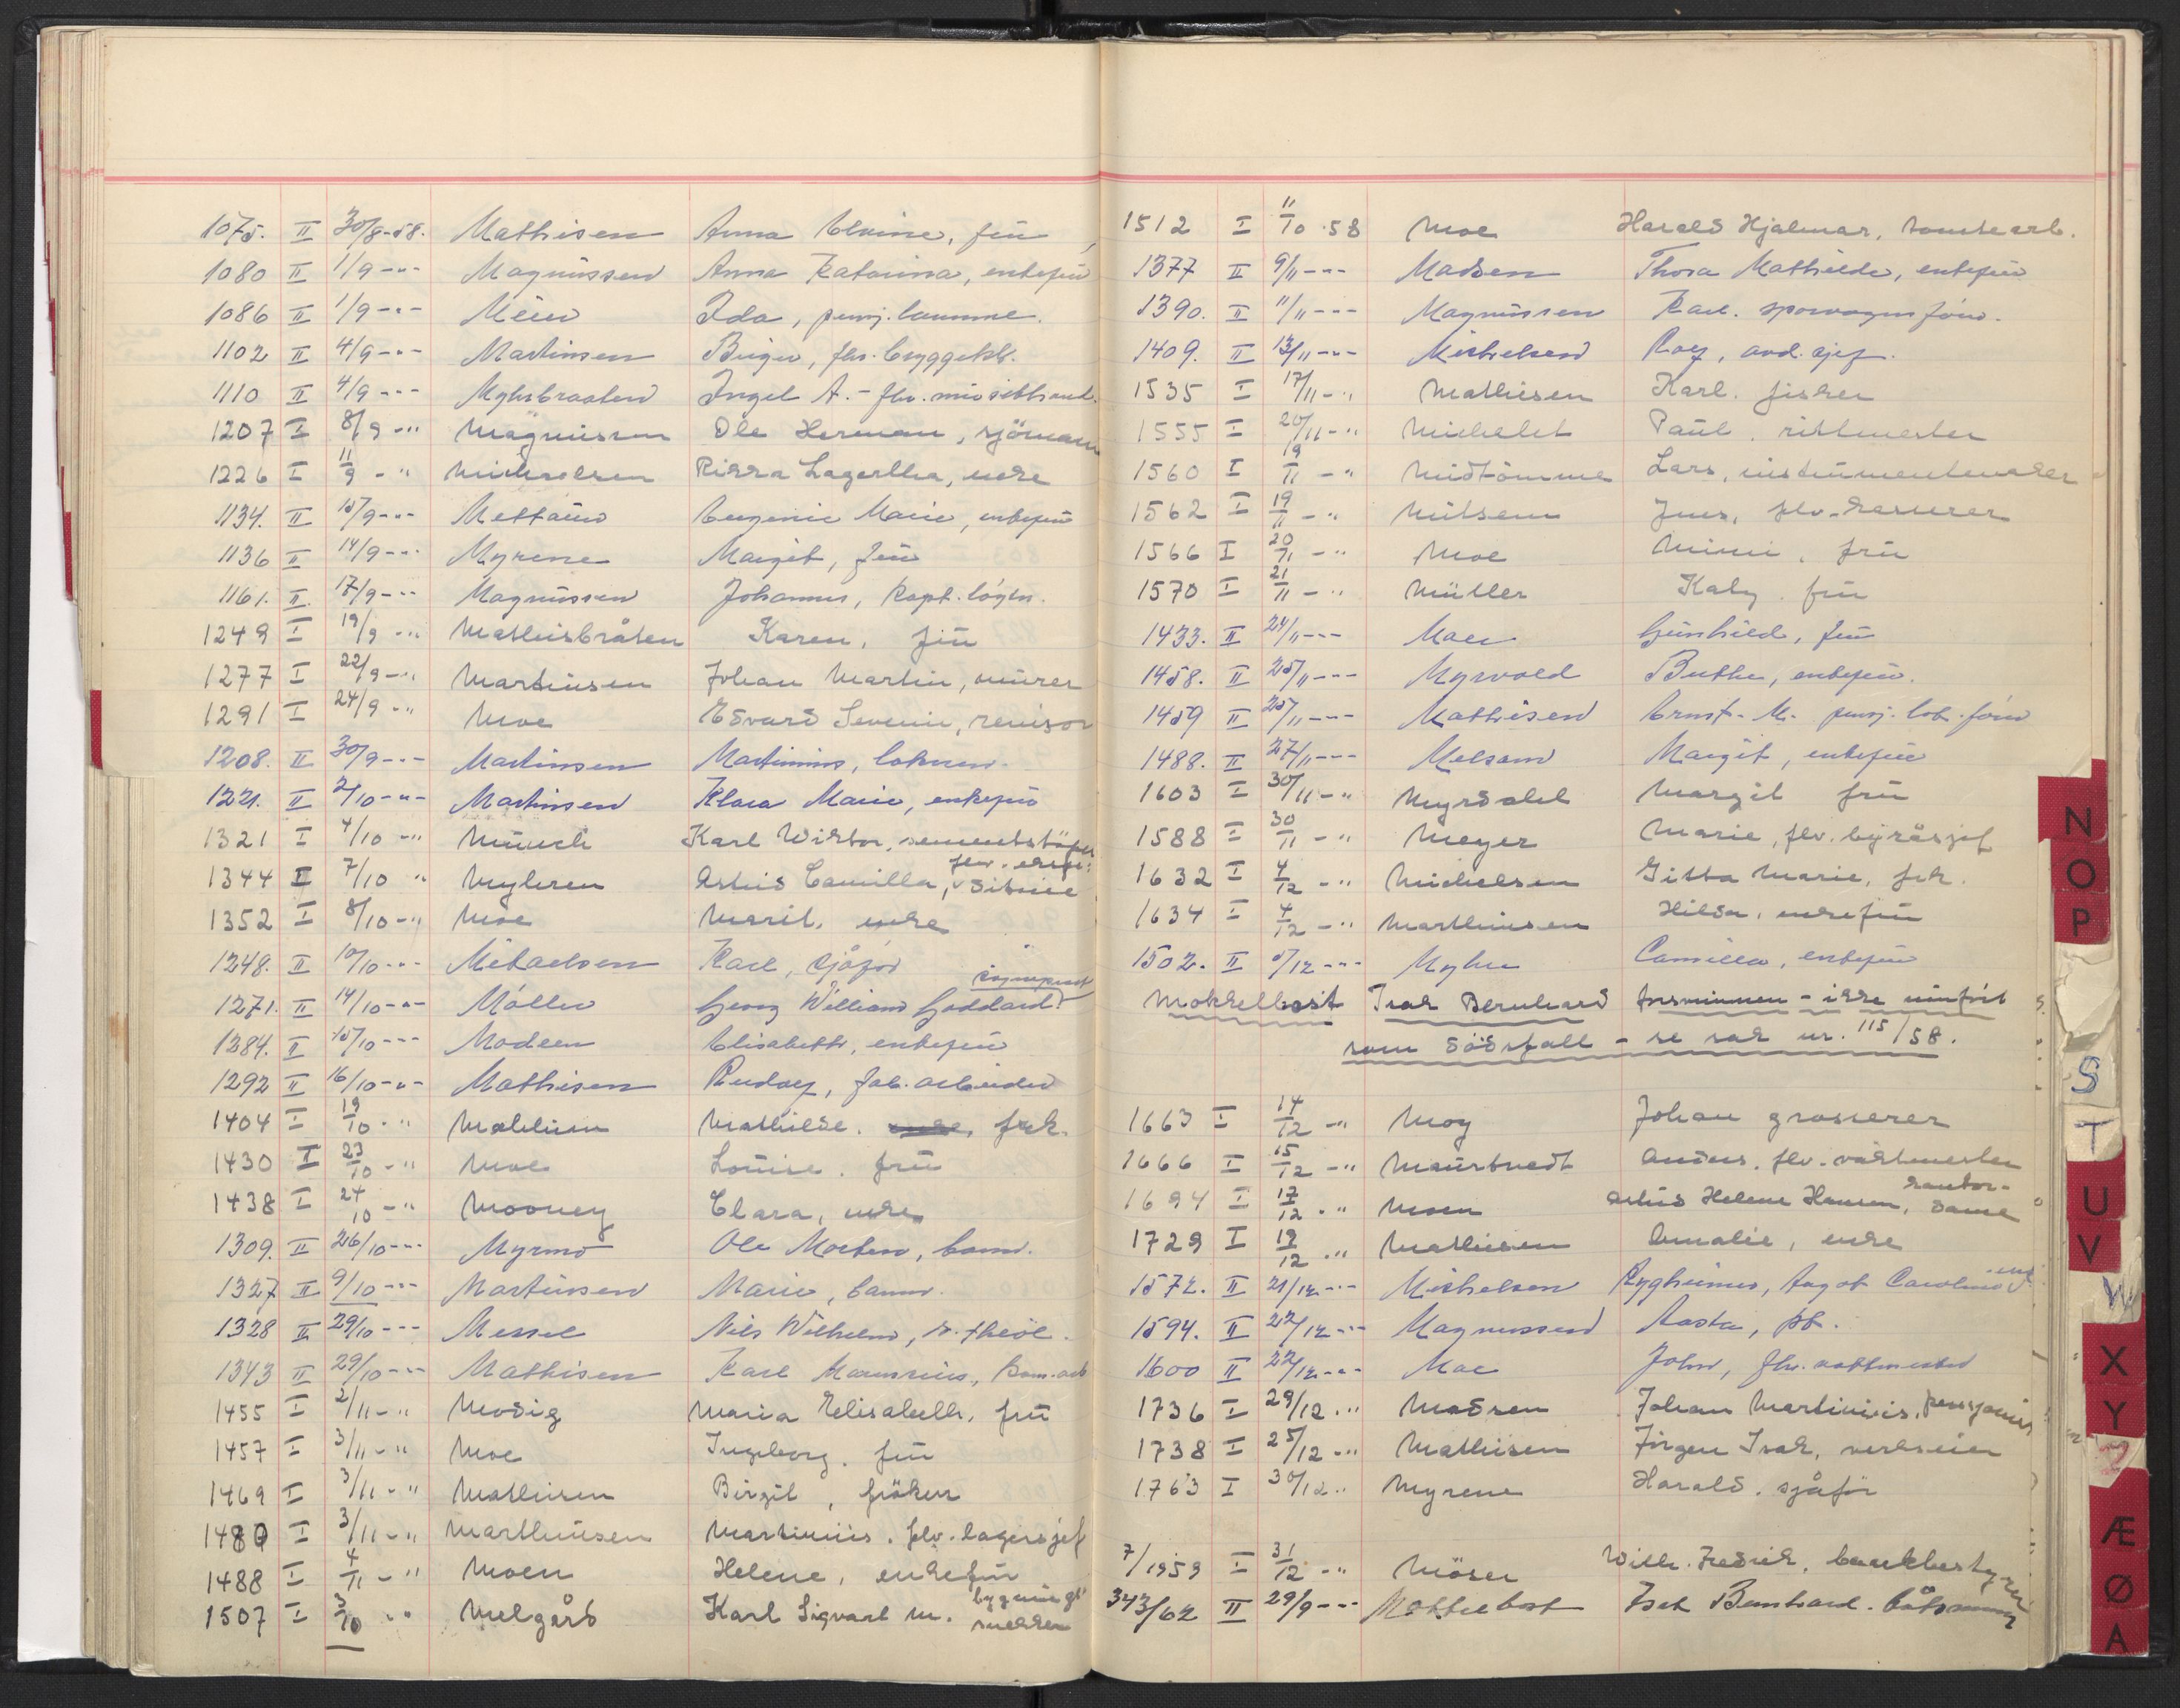 1075. II 30/8-58. Mathisen Anna Elvine, frü
1080 II 1/9 -"- Magnüssen Anna Katarina, enkefrü
1086 II 1/9 -"- Meier Ida, pensj.
1102 II 4/9 -"- Martinsen Birger, fhv.
1110 II 4/9 -"- Myhrbraaten Ingel A. - fhv.
1207 I 8/9 -"- Magnüssen Ole Herman, sjömann
1226 I 11/9 -" Michaelsen Rikka Lagertha, enke
1134. II 10/9 -"- Eugenie Marie, enkefrü
1136 II 14/9 -"- Myrene Margit, frü
1161. II. 17/9 -"- Magnüssen Johannes,
1249 I 19/9 -"- Mathisbråten Karen, frü
1277 I 22/9 -"- Martinsen Johan Martin, mürer
1291 I 24/9 -"- Moe Edvard Severin, revisor
1208. II 30/9 -"- Martinsen Martinius,
1221. II 2/10 -"- Martinsen Klara Marie, enkefrü
1321 I 4/10 -"- Münch Karl Wiktor, sementstöper
1344 I 7/10 " Myhren Astrid Camilla, fhv.
1352 I 8/10 -" Moe Marit, enke
1248. II 10/10 -"- Mikaelsen Karl, sjåfør
1271. II 14/10 -"- Møller Georg William Goddard. sogneprest
1284. II 15/10 -"- Madsen Elisabeth, enkefrü
1292 II 16/10 -"- Mathisen Rudolf, fab. arbeider
1404 I 19/10 -" Mathilde. frk.
1430 I 23/10 -" Moe Loüise. frü
1438 I 24/10 -" Mooney Clara, enke
1309. II 26/10 -"- Myrmo Ole Morten, barn.
1327 II 9/10 -"- Martinsen Marie, barn.
1328 II 29/10 -"- Messel Nils Wilhelm,
1343 II 29/10 -"- Mathisen Karl
1455 I 2/11 -" Modig Maria Elisabeth, frü
1457 I 3/11 -" Moe Ingeborg. frü
1469 I 3/11 -" Mathisen Birgit, fröken
1480 I 3/11 -" Marthinsen Martinius. fhv. lagersjef
1488 I 4/11 -" Moen Helene, enkefrü
1507 I 3/10 " Melgård Karl Sigvart M. snekker
1512 I 11/10 . 58 Moe Harald Hjalmar, tomtearb.
1377 II 9/11 -"- Madsen Thora Mathilde, enkefrü
1390. II 11/11 -"- Magnüssen Karl. sporvognsfører.
1409. II 13/11 -"- Michelsen Rolf, avd. sjef.
1535 I 17/11 -" Mathisen Karl. fisker
1555 I 20/11 -" Michelet Paül, rittmester
1560 I 19/11 -" Midtömme Lars, instrümentmaker
1562 I 19/11 -" Jens, fhv. kasserer
1566 I 20/11 -" Moe Mimi, frü
1570 I 21/11 -" Müller Kaly. frü
1433. II 24/11 -"- Moen Günhild, frü
1458. II 25/11 -"- Myrvold Berthe, enkefrü.
1459 II 25/11 -"- Mathisen Ernst. M. pensj. lok. fører
1488. II 27/11 -"- Melsom Margit, enkefrü
1603 I 30/11 -" Myrdahl Margit frü
1588 I 30/11 -" Meyer Marie, fhv. byråsjef
1632 I 4/12 -" Michelsen Gitta Marie, frk.
1634 I 4/12 -" Marthinsen Hilda, enkefrü
1502. II 5/12 -"- Myhre Camilla, enkefrü
Mokkelbost Isak Bernhard forsvunnen - ikke innført
som dödsfall - se sak nr. 115/58.
1663 I 14/12 -" Moy Johan grosserer
1666 I 15/12 -" Maürtvedt Anders. fhv. vaktmester
1694 I 17/12 . " Moen Astrid Helene Hansen, kontor-
dame
1729 I 19/12 . " Mathisen Amalie, enke
1572. II 21/12 -"- Michelsen Ragot Caroline
1594. II 22/12 -"- Magnussen Aasta,
1600 II 22/12 -"- Moe John, fhv.
1736 I 29/12 . " Madsen Johan Martinius, pensjonist
1738 I 25/12 -" Mathisen Jörgen Isak, verkseier
1763 I 30/12 " Myrene Harald. sjåför
7/1959 I 31/12 -" Möser Wilh. Fredrik, bankbestyrer
343/62 II 29/9 -"- Mokkelbost Isak Bernhard.
N
O
P
S
T
U
V
W
X
Y
Æ
Ø
A